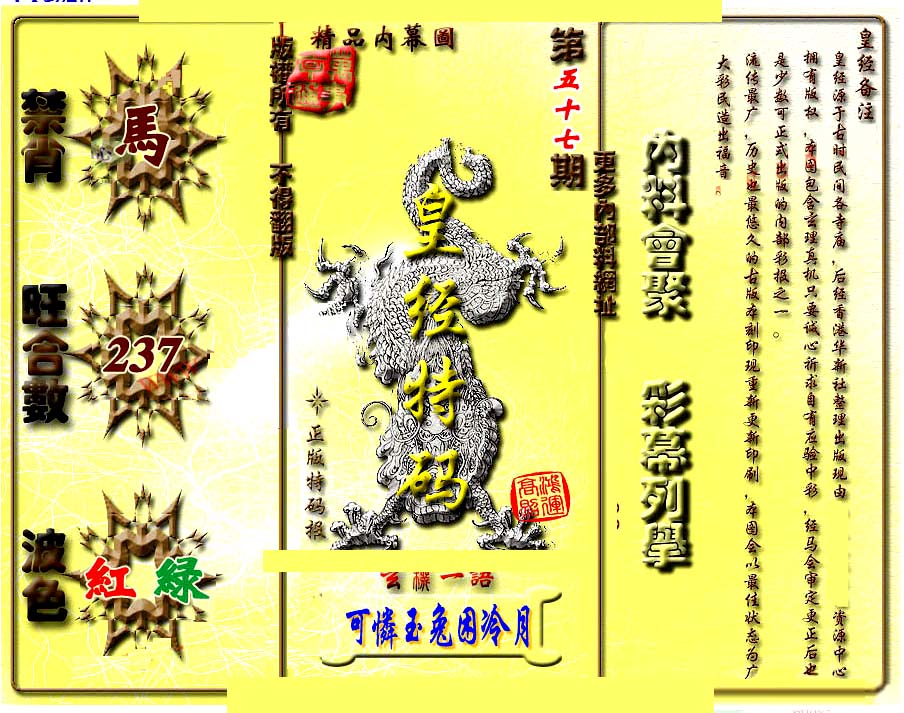 精品内幕圖
第五十七期
版權所有 不得翻版
更多內部料網址
禁肖
馬
旺合數
237
波色
紅 綠
皇经特码
正版特码报
鴻運高照
玄機一語
可憐玉兔困冷月
內料會聚 彩幕列舉
皇经备注
皇经源于古时民间各寺庙，后经香港华新社整理出版现由 资源中心
拥有版权，本图包含玄理真机只要诚心祈求自有应验中彩，经马会审定更正后也
是少数可正式出版的内部彩报之一。
流传最广，历史也最悠久的古版本刻印现重新更新印刷，本图会以最佳状态为广
大彩民造出福音